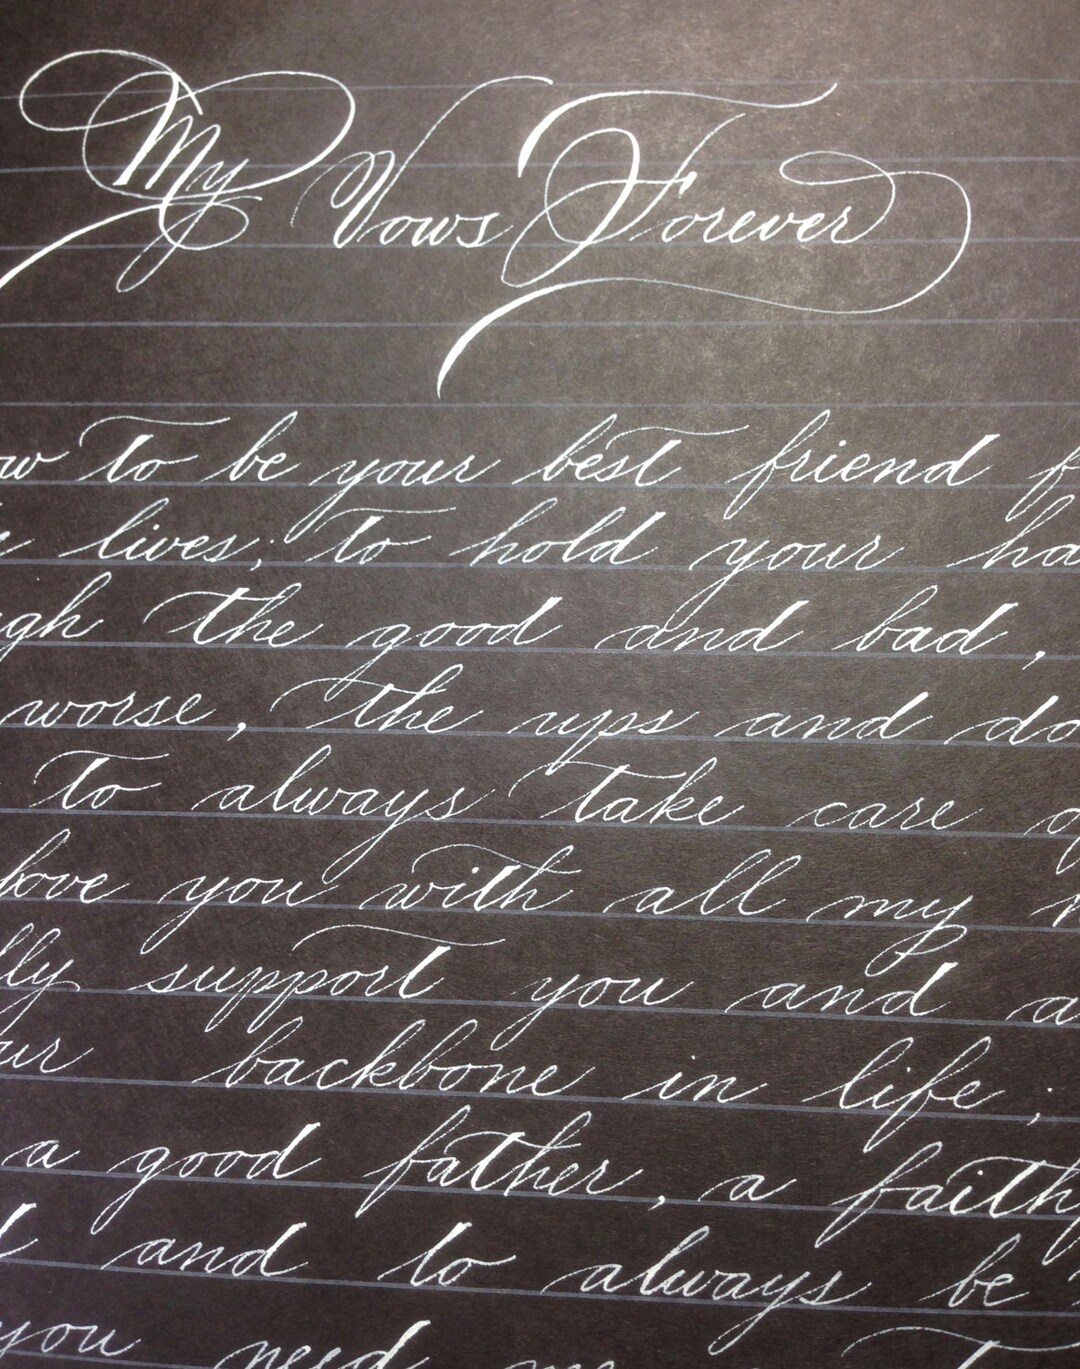 My Vows Forever
to be your best friend
lives; to hold your
the good and bad,
worse, the ups and
To always take care
love you with all my
support you and
backbone in life;
a good father, a
and to always be
you need me